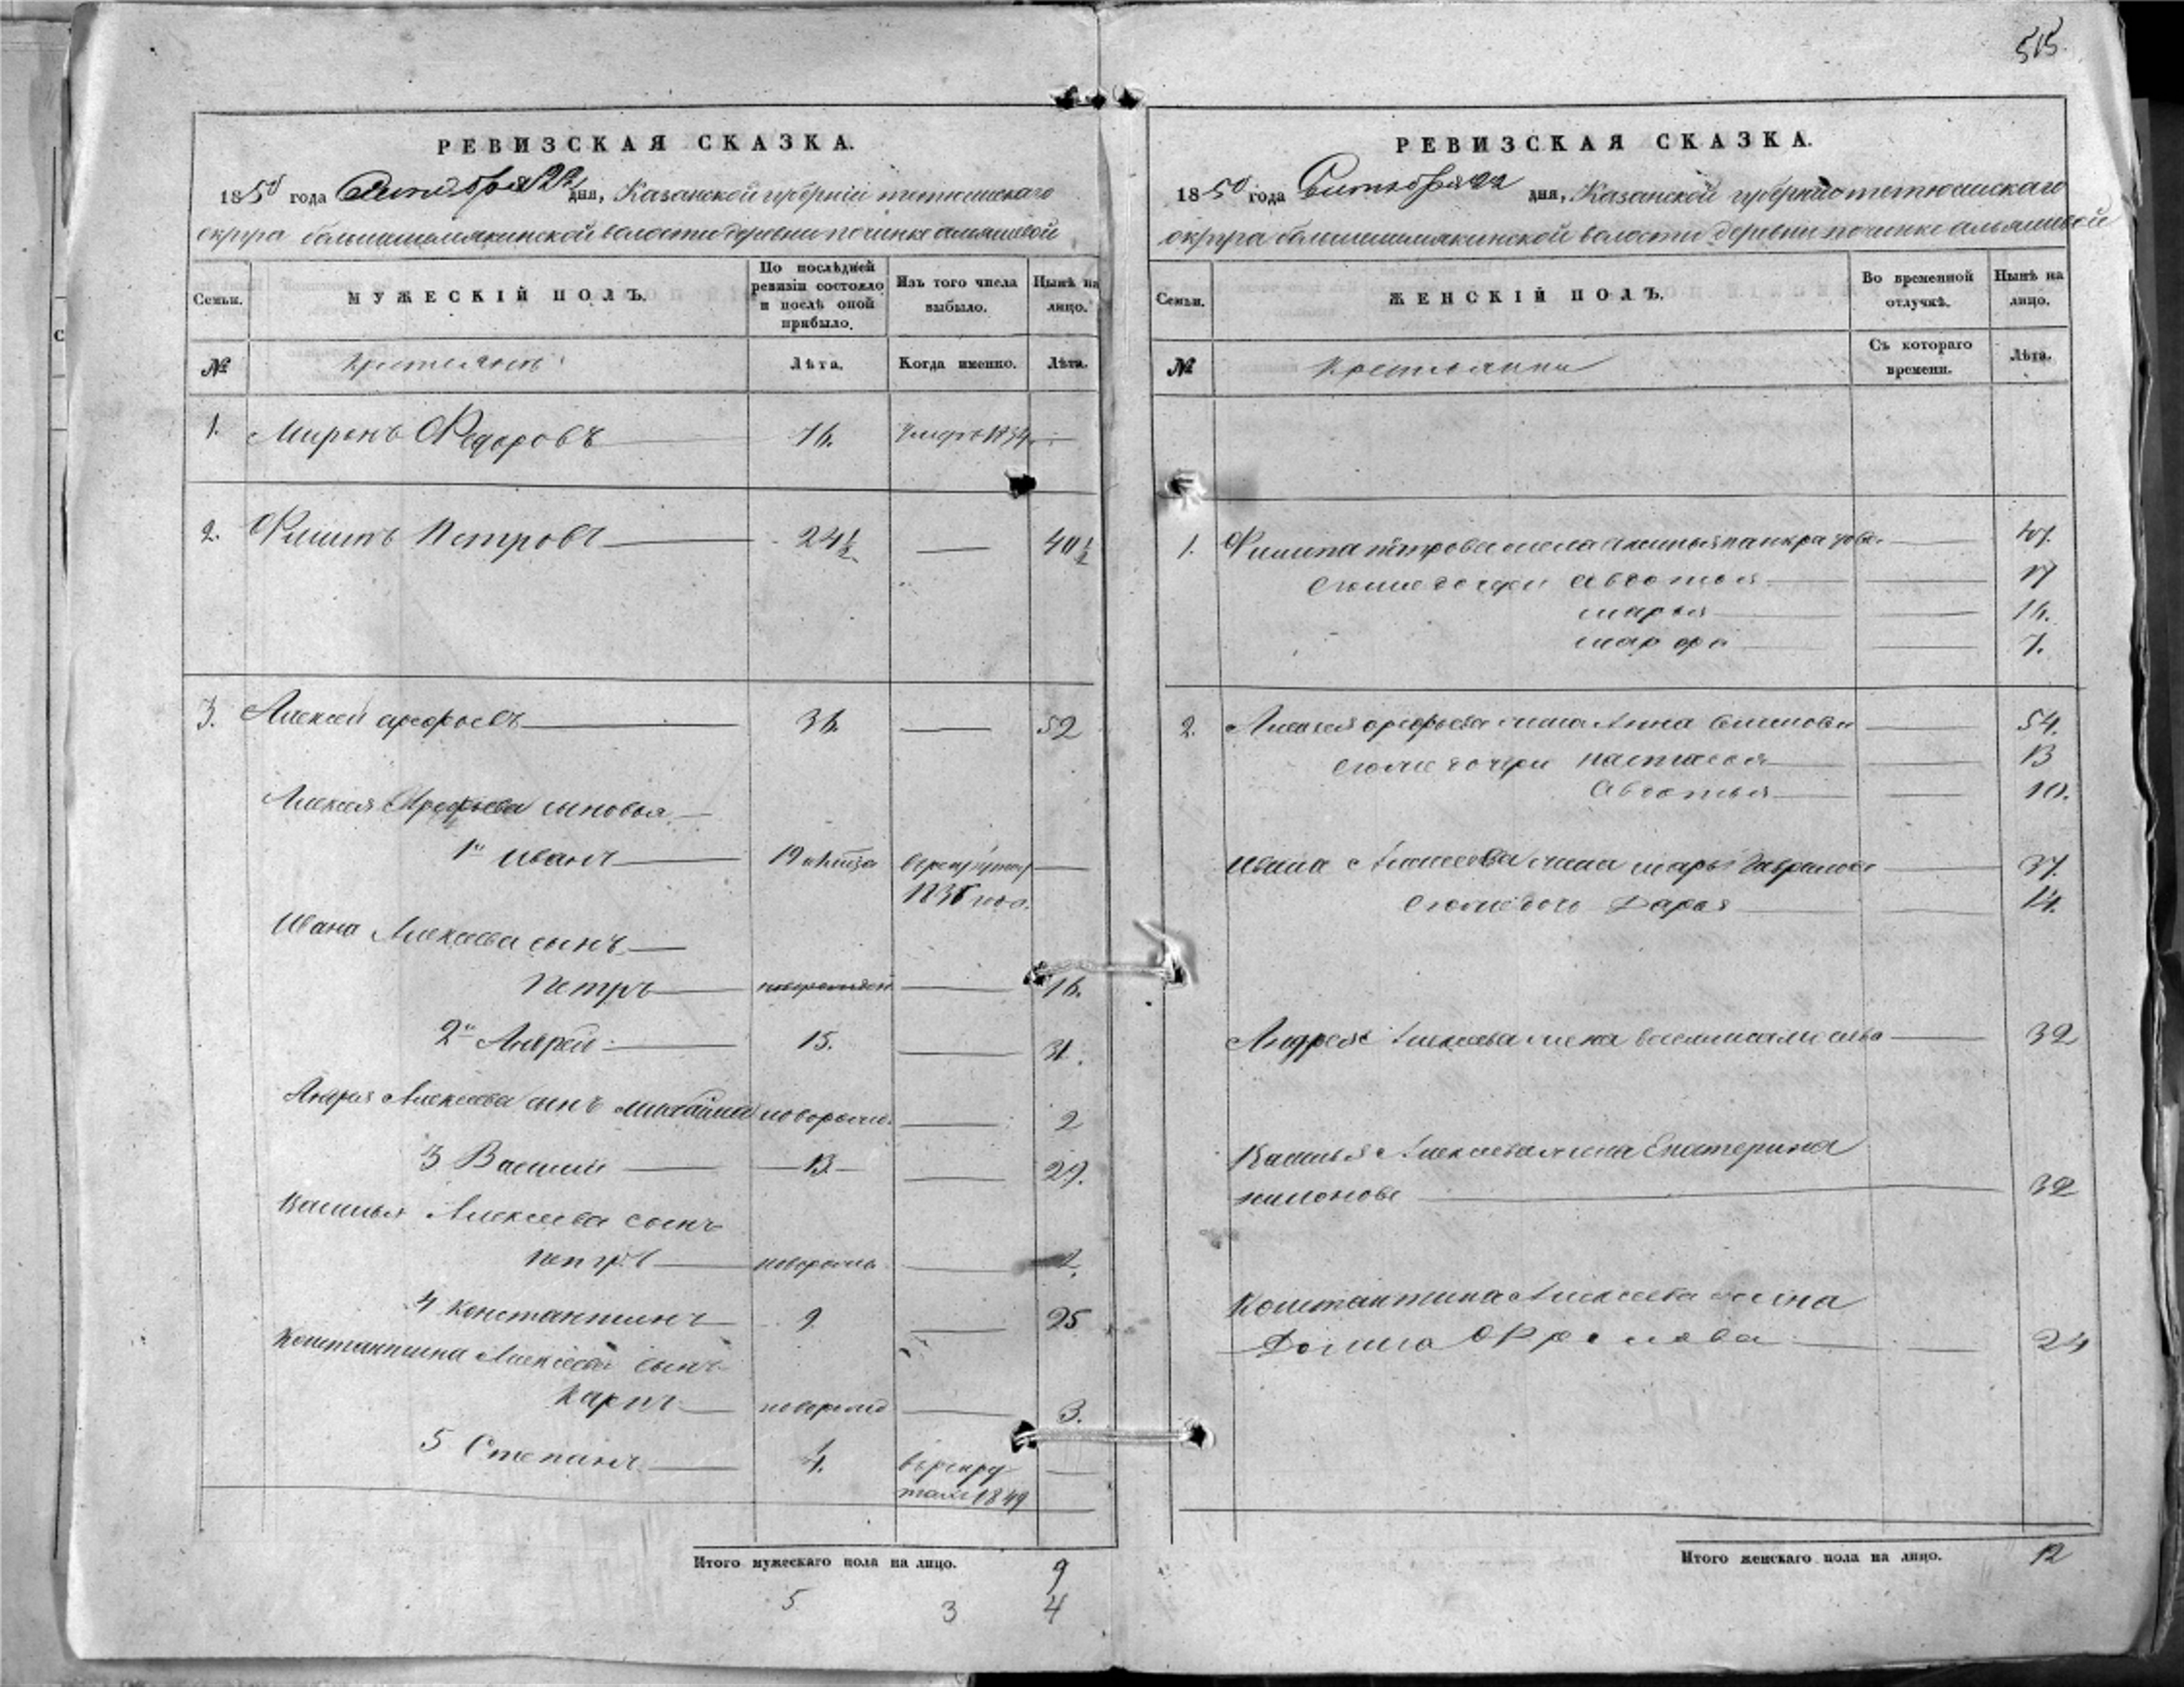 515.
РЕВИЗСКАЯ СКАЗКА.
1850 года Октября 22 дня, Казанской губернии тетюшскаго
округа большешемякинской волости деревни починке альяшевой
Семьи. МУЖЕСКІЙ ПОЛЪ. По послѣдней ревизіи состояло и послѣ оной прибыло. Изъ того числа выбыло. Нынѣ на лицо.
№ крестьянъ Лѣта. Когда именно. Лѣта.
1. Миронъ Федоровъ 76. Умеръ 1834
2. Филипъ Петровъ 24½ 40½
3. Алексей арефьевъ 36. 52
Алексея Арефьева сыновья
1й Иванъ 19
1835 года.
Ивана Алексеева сынъ
Петръ новорожден 16.
2й Андрей 15. 31.
Андрея Алексеева сынъ новорожд. 2
3 Василий 13 29.
Василья Алексеева сынъ
Петръ новорожд.
4 Константинъ 9 25
Константина Алексеева сынъ
Карпъ новорожд 3.
5 Степанъ 4. в рекру
таи 1849
Итого мужескаго пола на лицо. 9
5 3 4
РЕВИЗСКАЯ СКАЗКА.
1850 года Октября 22 дня, Казанской губернии тетюшскаго
округа большешемякинской волости деревни починке альяшевой
Семьи. ЖЕНСКІЙ ПОЛЪ. Во временной отлучкѣ. Нынѣ на лицо.
№ Крестьянки Съ котораго времени. Лѣта.
1. Филипа петрова жена панкратова 47.
Его же дочери Авдотья 17
марья 16.
марфа 7.
2. Алексея арефьева жена Анна 54.
Его же дочери Настасья 13
Авдотья 10.
Ивана Алексеева жена марья Гаврилова 37.
Его же дочь Дарья 14.
Андрея Алексеева жена 32
Василья Алексеева жена Екатерина
32
Константина Алексеева жена
24
Итого женскаго пола на лицо. 12